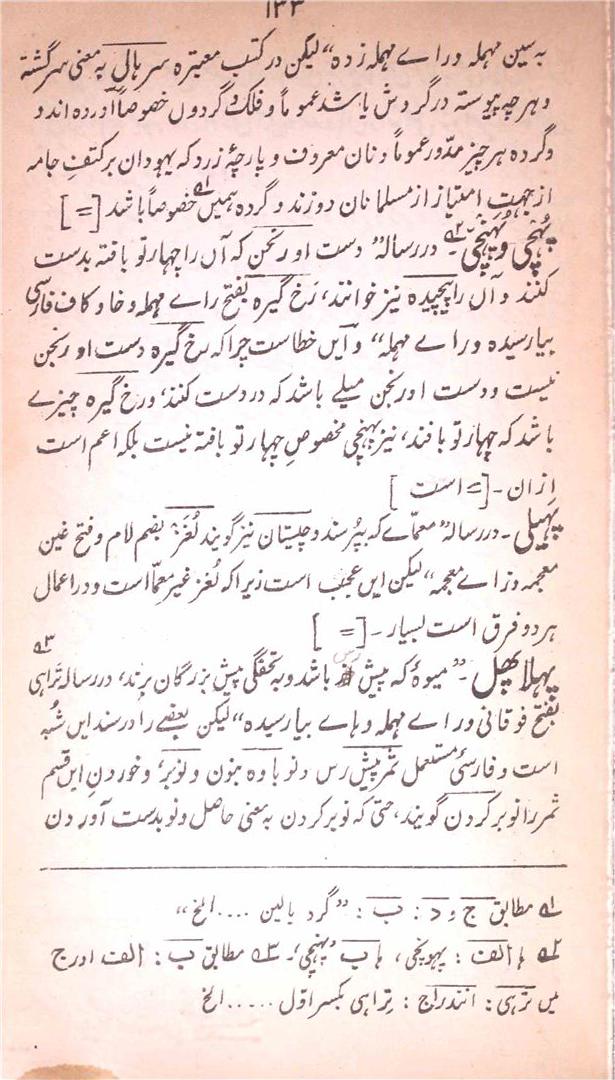 ۱۳۳
بہ سین مہملہ و راے مہملہ زدہ“ لیکن در کتب معتبرہ سرہالی بہ معنی سرگشتہ
و ہر چہ پیوستہ در گردش باشد عموماً و فلک و گردوں خصوصاً آوردہ اند و
گردہ ہر چیز مدّور عموماً و نان معروف و پارچۂ زرد کہ یہودان بر کتفِ جامہ
از جہتِ امتیاز از مسلمانان دوزند و گردہ ہمیں ۱؎ خصوصاً باشد [=]
پُہُنچی و پُہَنچی ۲؎۔ در رسالہ” دست اورنجن کہ آں را چہار تو بافتہ بدست
کنند و آں را پیچیدہ نیز خوانند، رَخ گیرہ بفتح راے مہملہ و خا و کاف فارسی
بیا رسیدہ و راے مہملہ“ و ایں خطاست چرا کہ رخ گیرہ دست اورنجن
نیست و دست اورنجن میلے باشد کہ در دست کنند، و رخ گیرہ چیزے
باشد کہ چہار تو بافند، نیز پہنچی مخصوصِ چہار تو بافتہ نیست بلکہ اعم است
ازان۔ [= است]
پہیلی۔ در رسالہ” معماے کہ بپرسند و چیستان نیز گویند لُغَز، بضم لام و فتح غین
معجمہ و زاے معجمہ“ لیکن ایں عجب است زیرا کہ لُغز غیر معمّا است و در اعمال
ہر دو فرق است بسیار۔ [=]
پہلا پھل ۳؎۔ ” میوۂ کہ پیش رس باشد و بہ تحفگی پیش بزرگان برند، در رسالہ تَراہی
بفتح فوقانی و راے مہملہ و ہاے بیا رسیدہ“ لیکن بعضے را در سند ایں شُبہ
است و فارسیٔ مستعمل ثمر پیش رس و نو باوہ بنون و نوبر، و خوردنِ ایں قسم
ثمر را نوبر کردن گویند، حتی کہ نوبر کردن بہ معنی حاصل و نو بدست آوردن
۱؎ مطابق ج و د : ب : ” گرد بالین .... الخ“
۲؎ ہا الف : پہونچی، ہا ب ’پہنچی‘۔ ۳؎ مطابق ب : الف اور ج
میں ترہی : انندراج : تِراہی بکسر اوّل ..... الخ